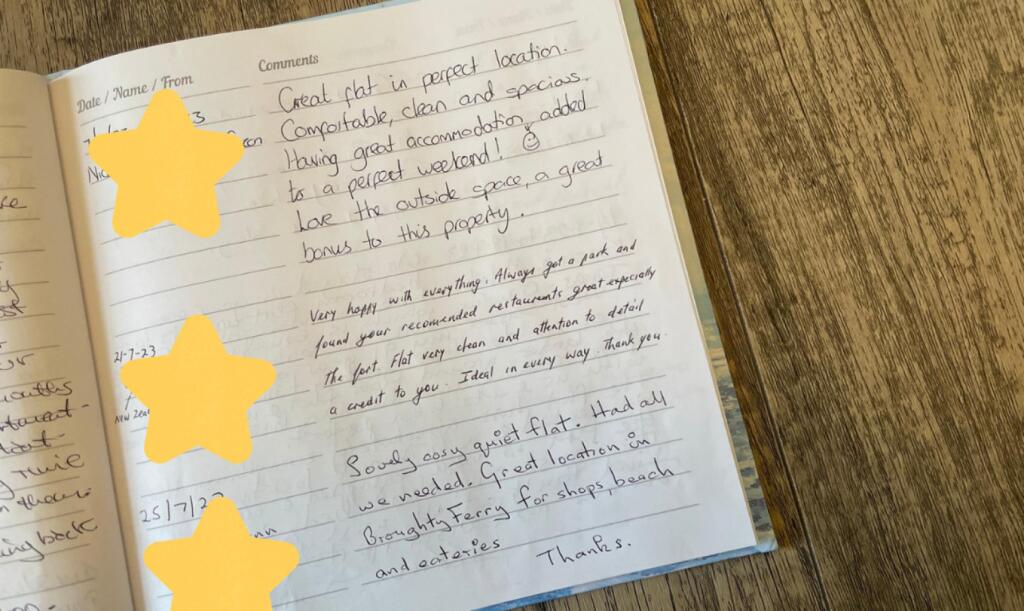 Date / Name / From
Comments
3
Great flat in perfect location.
Comfortable, clean and specious.
Having great accommodation, added
to a perfect weekend!
Love the outside space, a great
bonus to this property.
21-7-23
Very happy with everything. Always got a park and
found your recomended restaurants great especially
The fort. Flat very clean and attention to detail
a credit to you. Ideal in every way. Thank you.
25/7/2
Lovely cosy quiet flat. Had all
we needed. Great location in
Broughty Ferry for shops, beach
and eateries
Thanks.